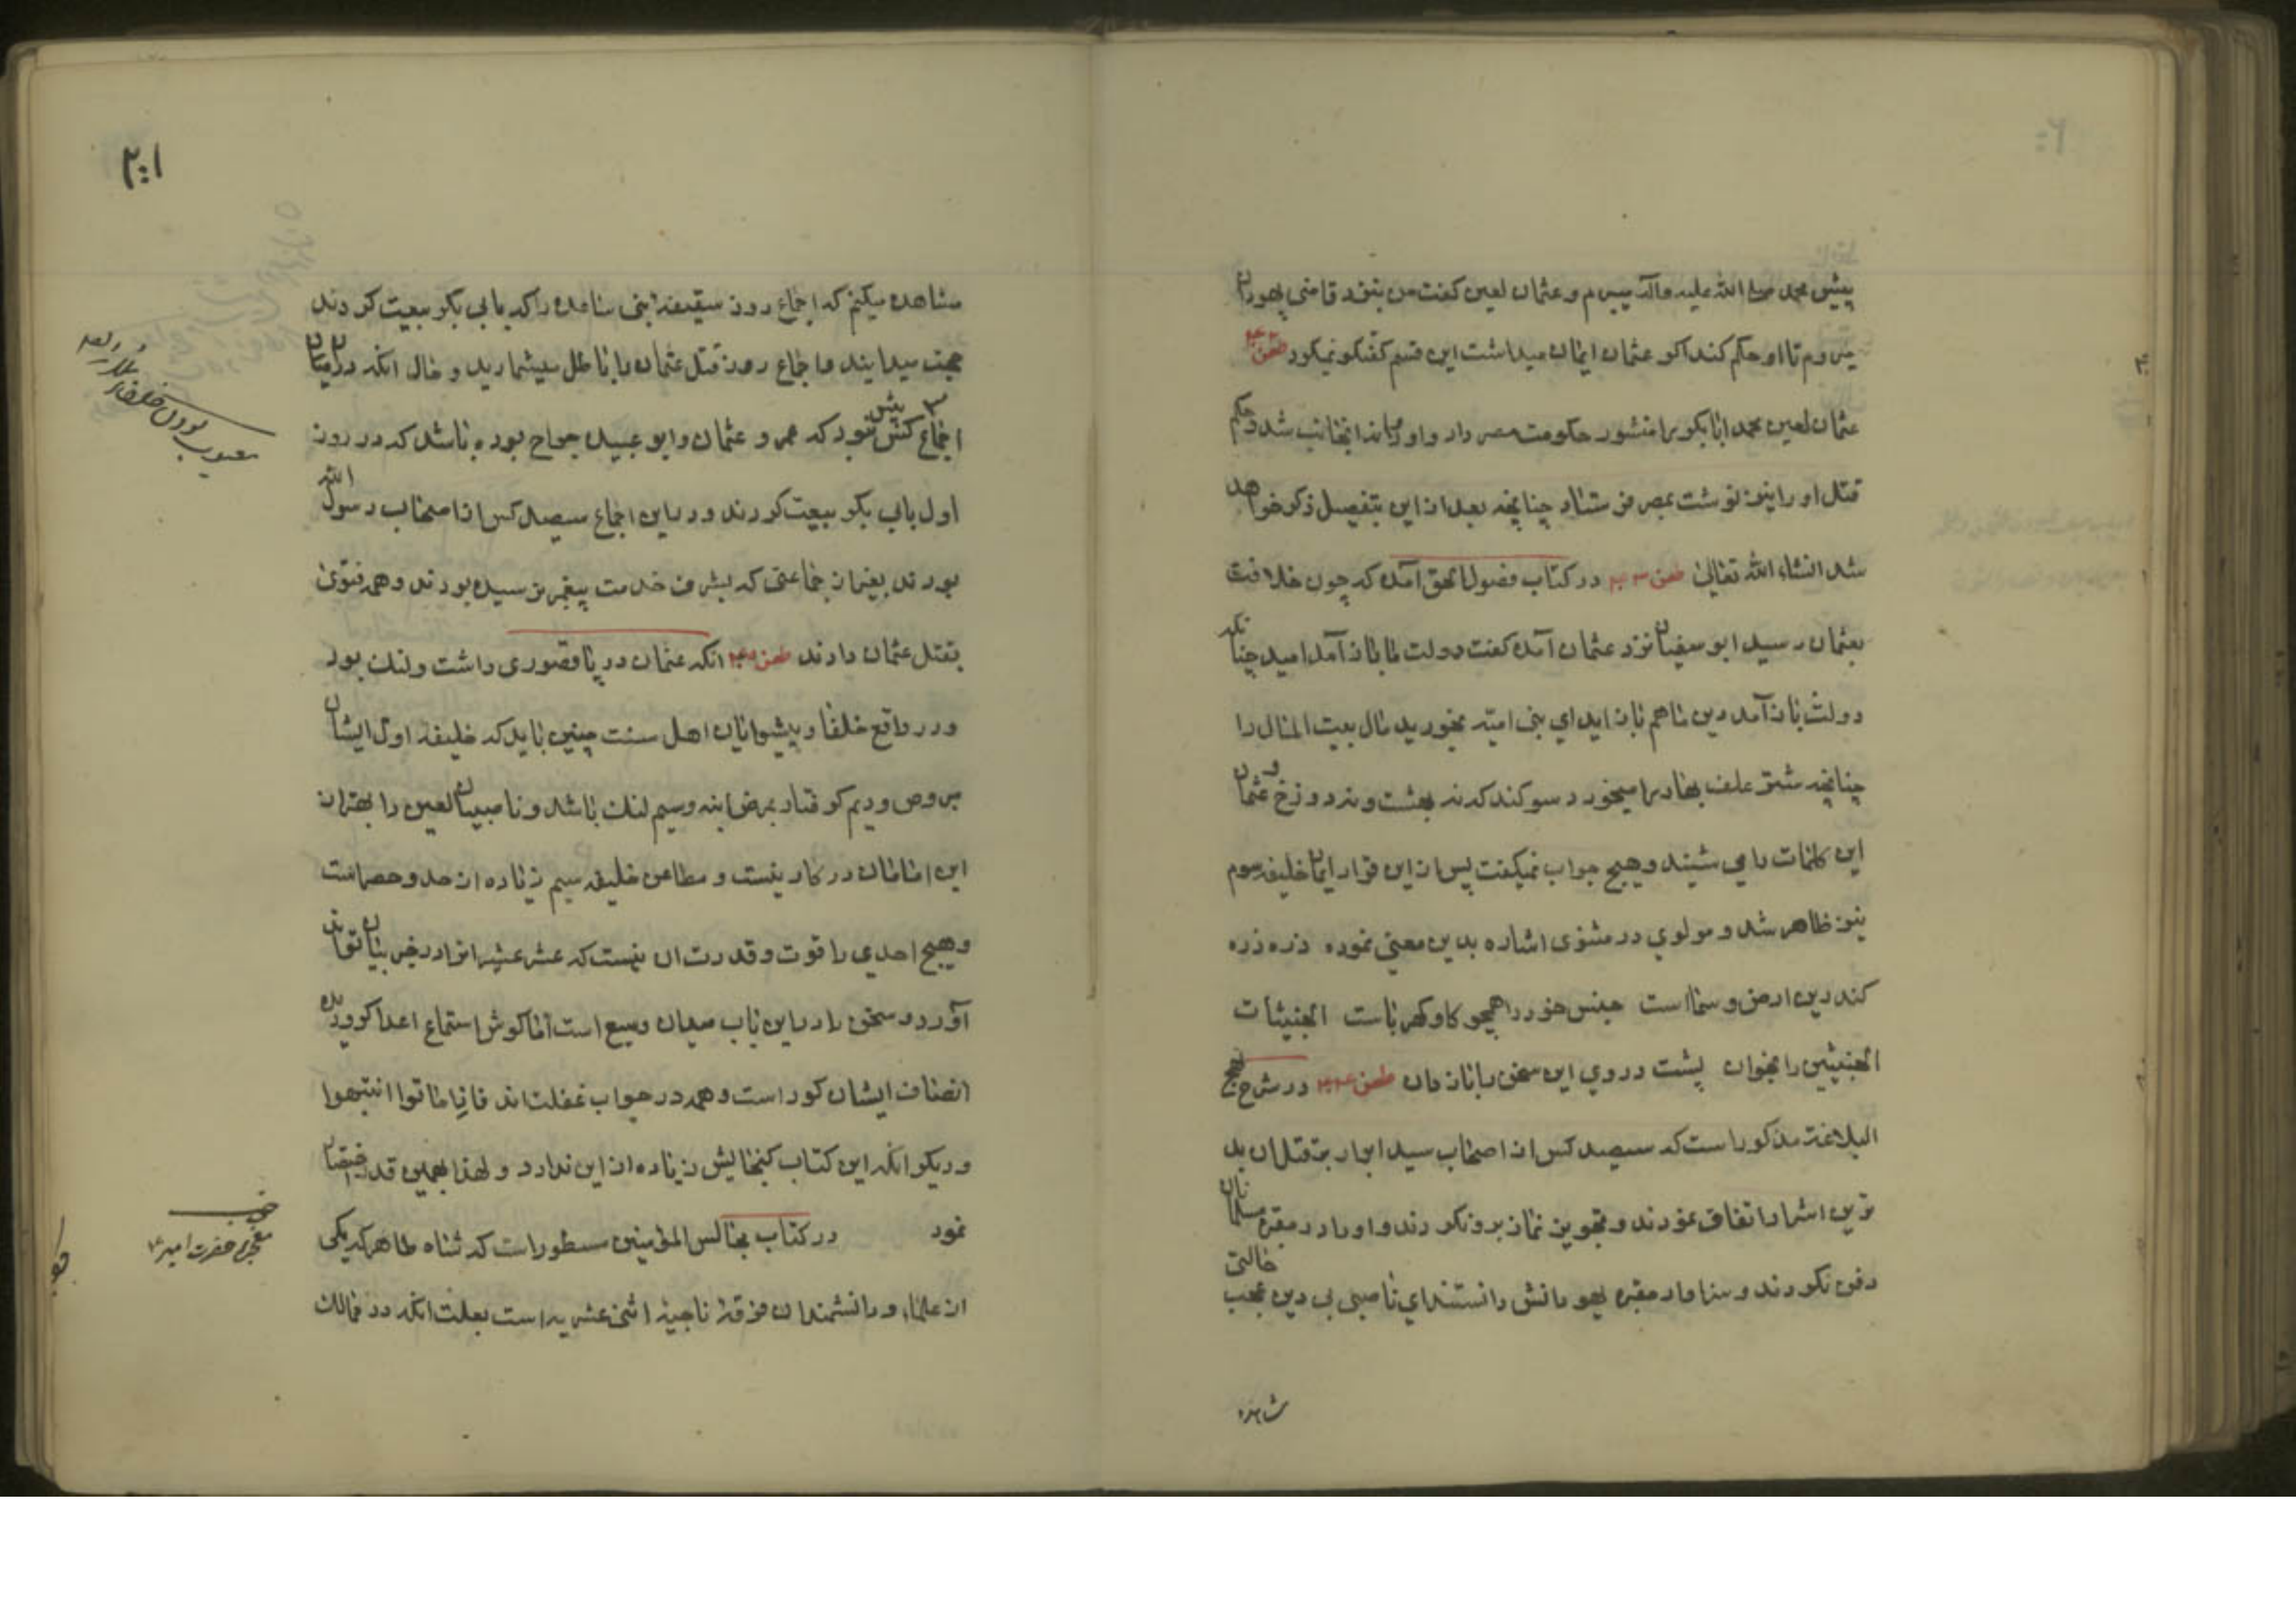 پیش محمد صلی الله علیه وآله میبرم و عثمان لعین کفت من بنزد قاضی یهودان
میروم تا او حکم کند اکر عثمان ایمان میداشت این قسم کفتکو نمیکرد طعن
عثمان لعین محمد ابابکر را منشور حکومت مصر داد و او روانه انجانب شد و حکم
قتل او را نیز نوشت بمصر فرستاد چنانچه بعد از این بتفصیل ذکر خواهد
شد انشاء الله تعالی طعن در کتاب فصول الحق آمده که چون خلافت
بعثمان رسید ابو سفیان نزد عثمان آمده کفت دولت ما باز آمد امید چنانکه
دولت باز آمد دین ما هم باز اید ای بنی امیّه بخورید مال بیت المال را
چنانچه شتر علف بهار را میخورد سوکند که نه بهشت و نه دوزخ و عثمان
این کلمات را می شنید و هیچ جواب نمیکفت پس از این قرار ایمان خلیفه سوم
نیز ظاهر شد و مولوی در مثنوی اشاره بدین معنی نموده ذره ذره
کندرین ارض و سما است جنس خود را همچو کاه و کهرباست الخبیثات
الخبیثین را بخوان پشت و روی این سخن را باز دان طعن در شرح نهج
البلاغة مذکور است که سیصد کس از اصحاب سید ابرار بر قتل ان بد
ترین اشرار اتفاق نمودند و تجویز نماز برو نکردند و او را در مقبره مسلمانان
دفن نکردند و سزاوار مقبره یهودانش دانستند ای ناصبی بی دین عجب حالتی
شاهده
۲۰۱
مشاهده میکنم که اجماع روز سقیفه بنی ساعده را که بابی بکر بیعت کردند
حجت میدانید و اجماع روز قتل عثمان را باطل میشمارید و حال انکه در میان ان
اجماع سه کس بیش نبود که عمر و عثمان و ابو عبیده جراح بوده باشد که در روز
اول بابی بکر بیعت کردند و در این اجماع سیصد کس از اصحاب رسول الله
بودند بغیر از جماعتی که بشرف خدمت پیغمبر نرسیده بودند و همه فتوی
بقتل عثمان دادند طعن انکه عثمان در پا قصوری داشت و لنک بود
و در واقع خلفا و پیشوایان اهل سنت چنین باید که خلیفه اول ایشان
مبروص و دیم کرفتار بمرض ابنه و سیم لنک باشد و ناصبیان لعین را بهتر از
این امامان در کار نیست و مطاعن خلیفه سیم زیاده از حد و حصر است
و هیچ احدی را قوت و قدرت ان نیست که عشر عشیر انرا در خیر بیان تواند
آورد و سخن را در این باب میدان وسیع است امّا کوش استماع اعدا کر و دیده
انصاف ایشان کور است و همه در خواب غفلت اند فاذا ماتوا انتبهوا
و دیکر انکه این کتاب کنجایش زیاده از این ندارد و لهذا بهمین قدر اختصار
نمود در کتاب مجالس المؤمنین مسطور است که شاه طاهر که یکی
از علماء و دانشمندان فرقهٔ ناجیهٔ اثنی عشریه است بعلت انکه در ممالک
معیوب بودن خلفاء
معجزه حضرت امیر